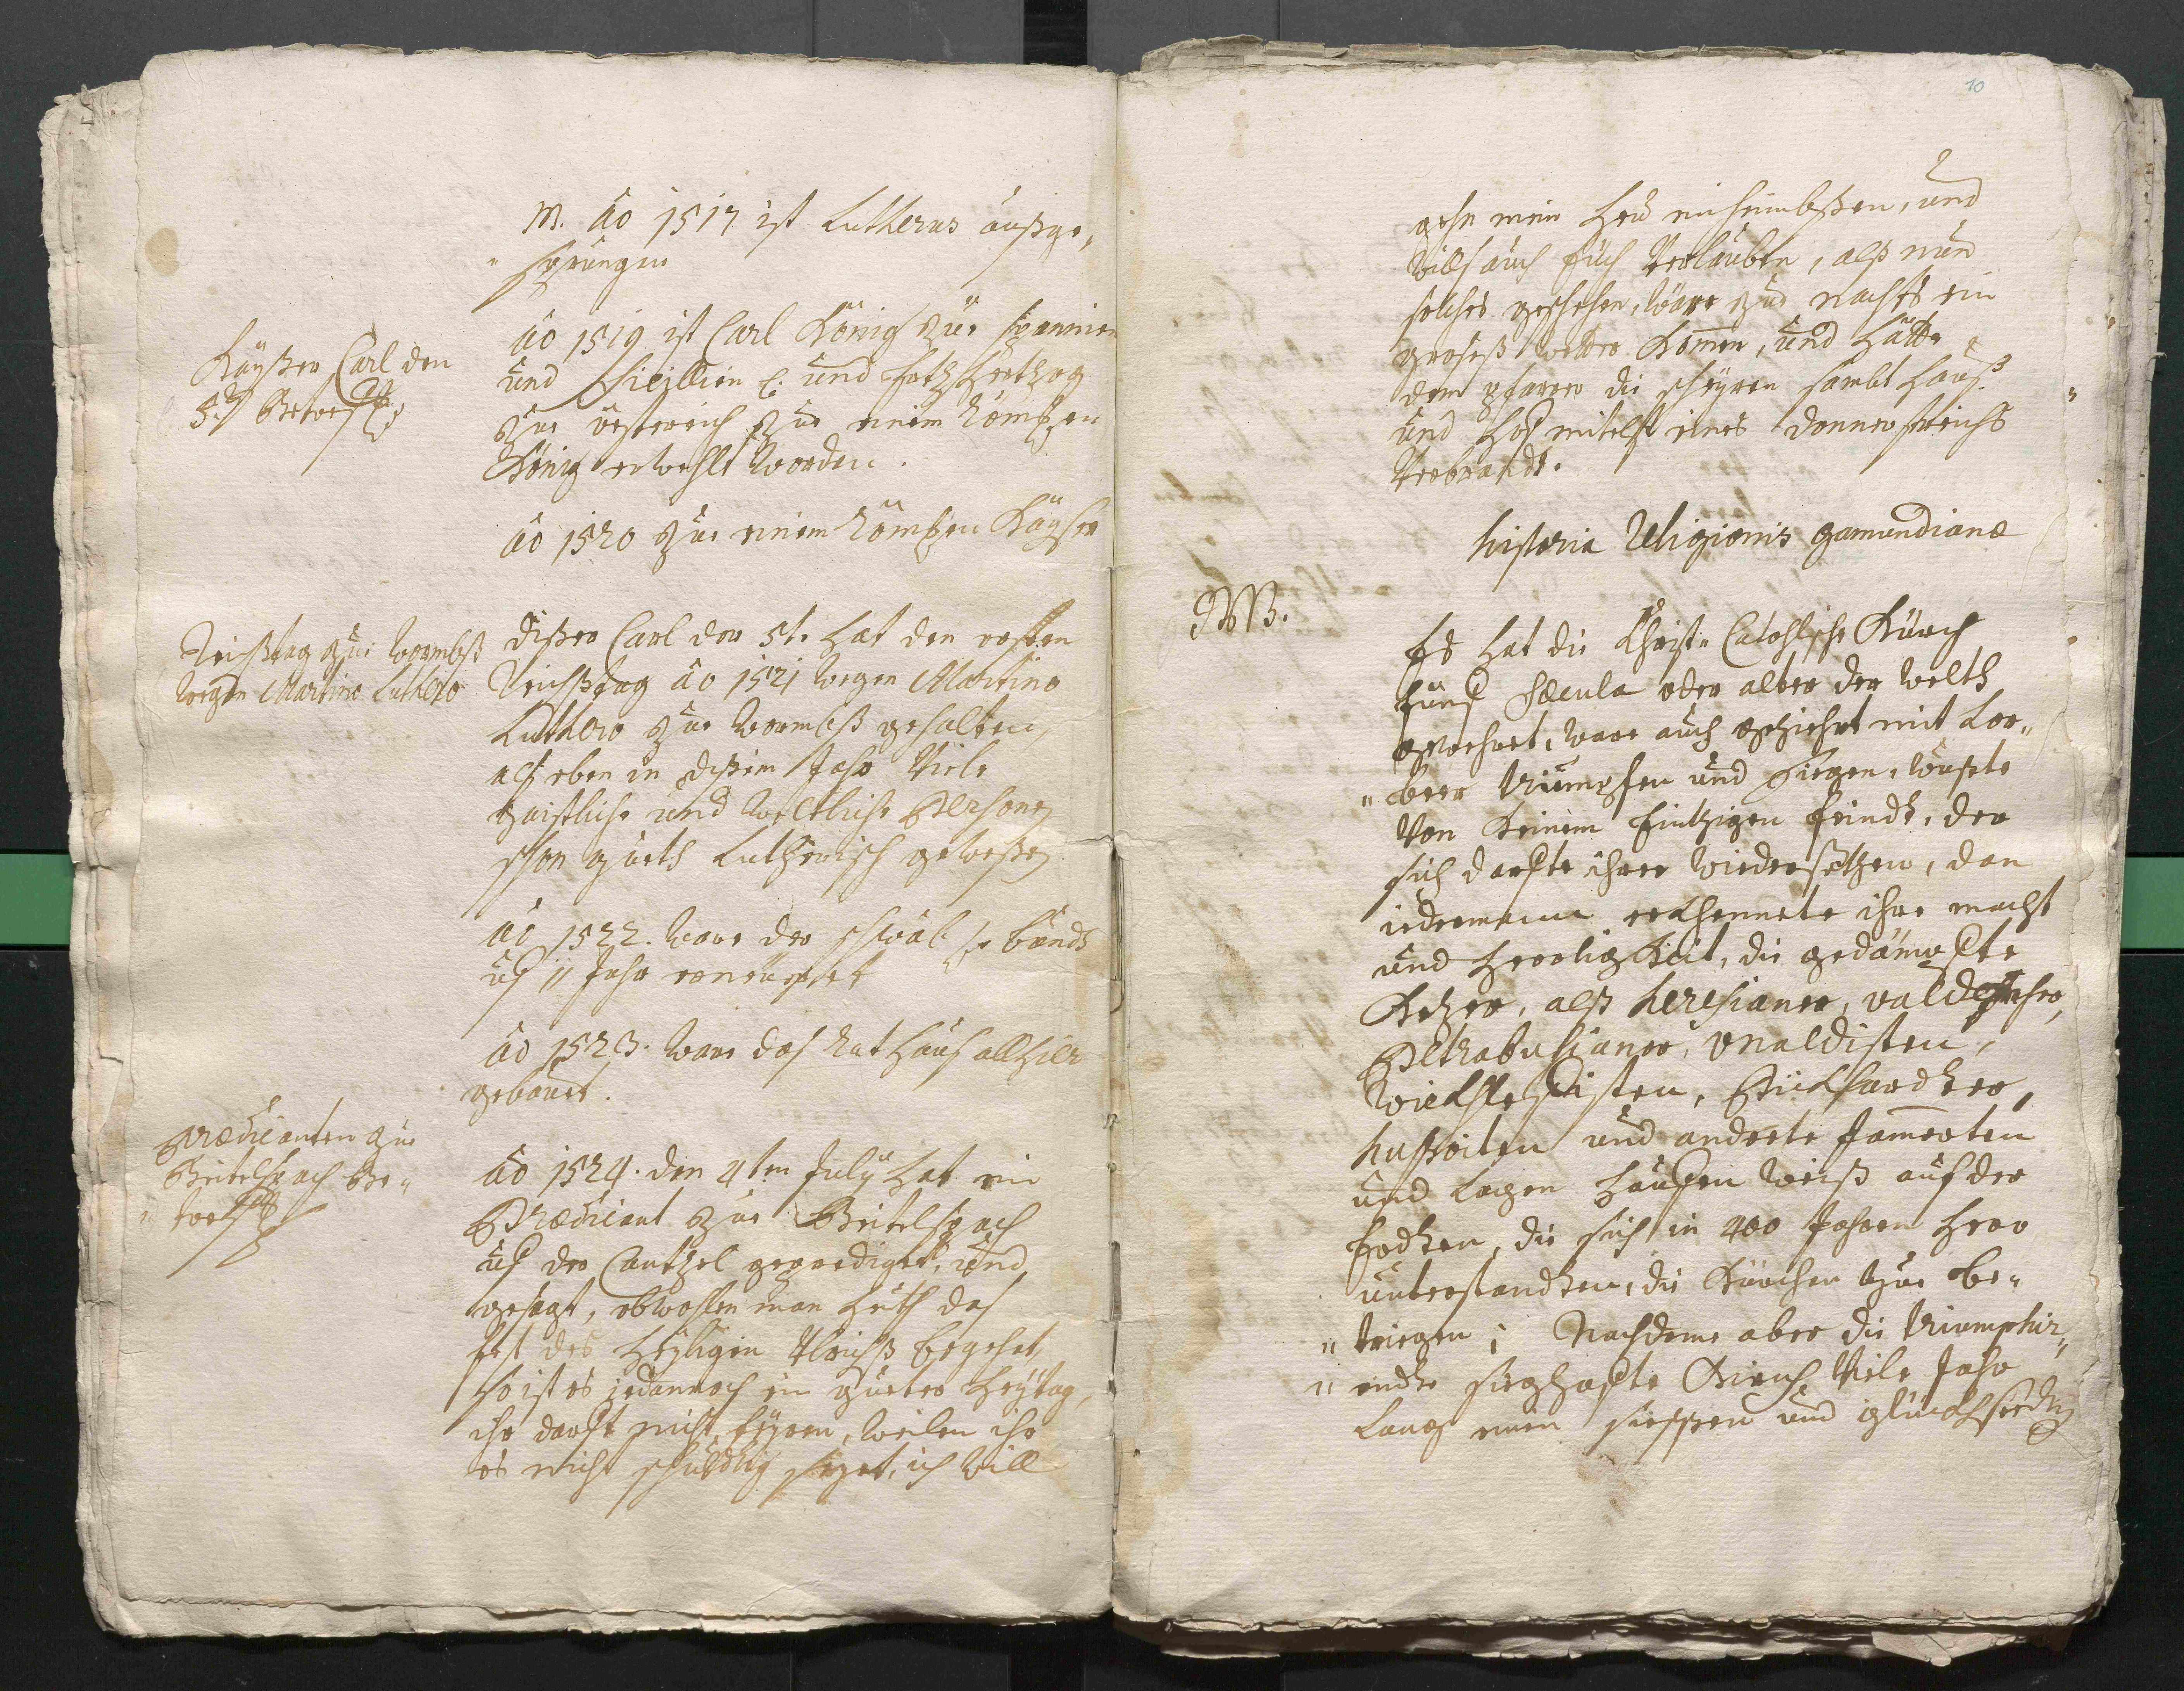 M. Ao 1517 ist Lutherus außge„
„ sprungen
Kayßer Carl den
5.t Betref:
Ao 1519 ist Carl König zur Spannien
und Sicillien &. und Ertzhertzog
zur össterreich zur einem Römßen
König erwehlt worden.
Ao 1520 zur einem Römßen Kayser
Reichßtag zur Wormbß
wegen Martino Luthero
dißer Carl der 5t. hat den ersten
Reichßtag Ao 1521 wegen Martino
Luthero zur Wormbß gehalten,
alß eben in dißem Jahr Viele
gaistliche und Weltliche Persone
schon guets Lutherisch geweßen
Ao 1522. ware der schwäb: bundt
uf 11 Jahr
Ao 1523. ware das Rathaus allhier
gebauet.
Prædicanten zur
Beitelspach Be„
„ tref:
Ao 1524. den 4ten July hat ein
Prædicant zur Beitelspach
uf der Cantzel geprediget, und
gesagt, obwohlen man heuth das
fest des Heyligen Ulrichß begehet,
so ist es jedannoch ein gueter heytag,
ihr darft nicht feyren, weilen ihr
es nicht schuldig seyet, ich will
10
gehn mein heu einheimbßen, und
wills auch Euch Verlauben, alß nun
solches geschehen, ware zur nachts ein
großeß wetter Kommen, und hatte
dem pfarrer die scheyren sambt hauß
und hof mitelst eines donnerstreichs
Verbrandt.
historia Religionis gamundianæ
NB.
Es hat die Christ: Catohlische Kürch
fünf Sæcula oder alter der welth
gewehret, ware auch geziehret mit Lor„
„ beer triumpfen und siegen, wuste
Von Keinem Eintzigen feindt, der
sich darfte ihrer widersetzen, dan
iederman erkhennete ihre macht
und herrligkeit, die gedämpfte
Ketzer, alß heresianer, valdenser,
Petrabusianer, vnaldisten,
Wickhlefisten, Pickhardter,
hussiten und anderte
und lagen hauffen weiß auf der
Erdten, die sich in 400 Jahren herr
unterstandten, die Kürchen zur be„
„ triegen; Nachdeme aber die triumphir„
„ endte sieghafte Kirch Viele Jahr
lang einen siessen und glückhseelig